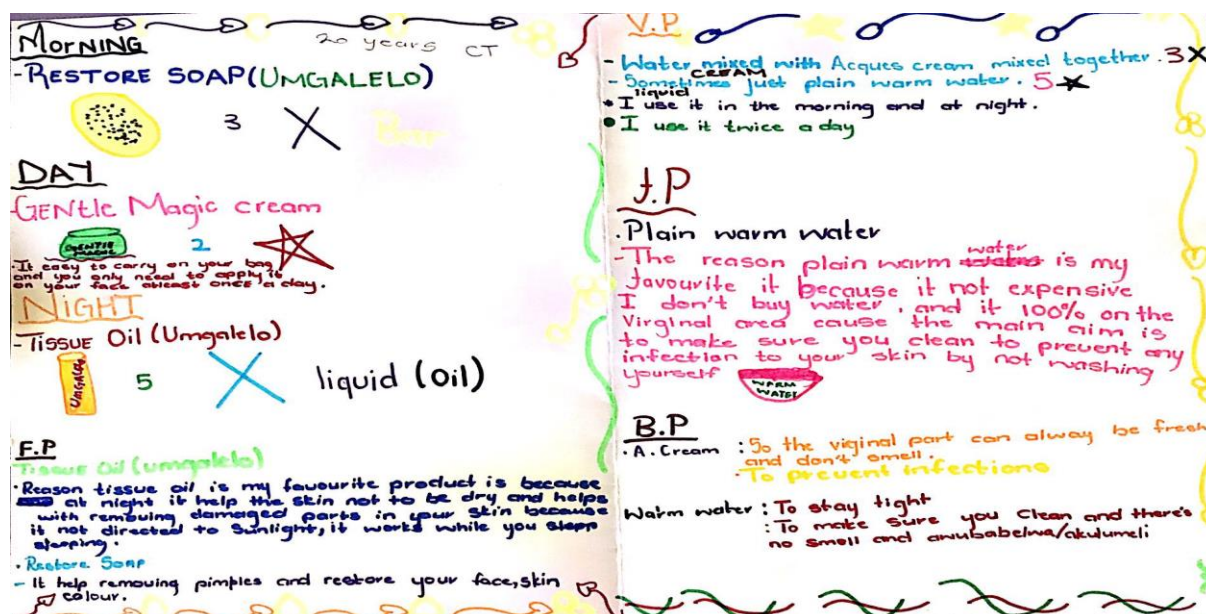 MORNING
20 years CT
- RESTORE SOAP (UMGALELO)
3
Bar
DAY
- GENTLE Magic cream
GENTLE MAGIC
2
· It easy to carry on your bag
and you only need to apply it
on your face atleast once a day.
NIGHT
- TISSUE Oil (Umgalelo)
UMGALELO
5
liquid (Oil)
F.P
Tissue Oil (umgalelo)
· Reason tissue oil is my favourite product is because
at night it help the skin not to be dry and helps
with removing damaged parts in your skin because
it not directed to Sunlight, it works while you
sleeping.
· Restore Soap
- It help removing pimples and restore your face, skin
colour.
V.P
- Water mixed with Acques cream mixed together. 3 X
CREAM
- Sometimes just plain warm water. 5
liquid
· I use it in the morning and at night.
· I use it twice a day
f.P
· Plain warm water
water
- The reason plain warm is my
favourite it because it not expensive
I don't buy water, and it 100% on the
Virginal area cause the main aim is
to make sure you clean to prevent any
infection to your skin by not washing
yourself
WARM
WATER
B.P
· A. Cream : So the viginal part can alway be fresh
and don't smell.
· To prevent infections
Warm water : To stay tight
: To make sure you Clean and there's
no smell and awubabelwa/akulumeli